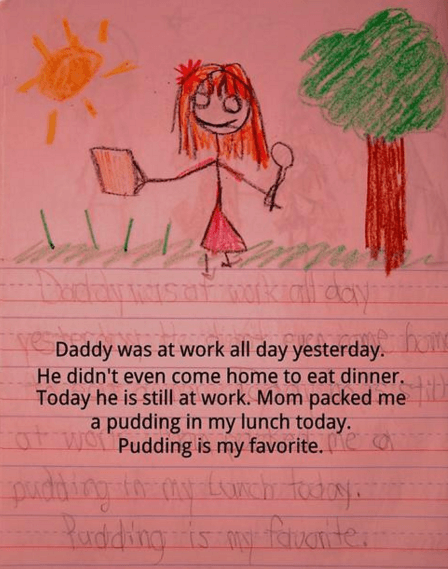 Daddy was at work all day
Daddy was at work all day yesterday.
He didn't even come home to eat dinner.
Today he is still at work. Mom packed me
a pudding in my lunch today.
Pudding is my favorite.
pudding in my lunch today.
Pudding is my favorite.